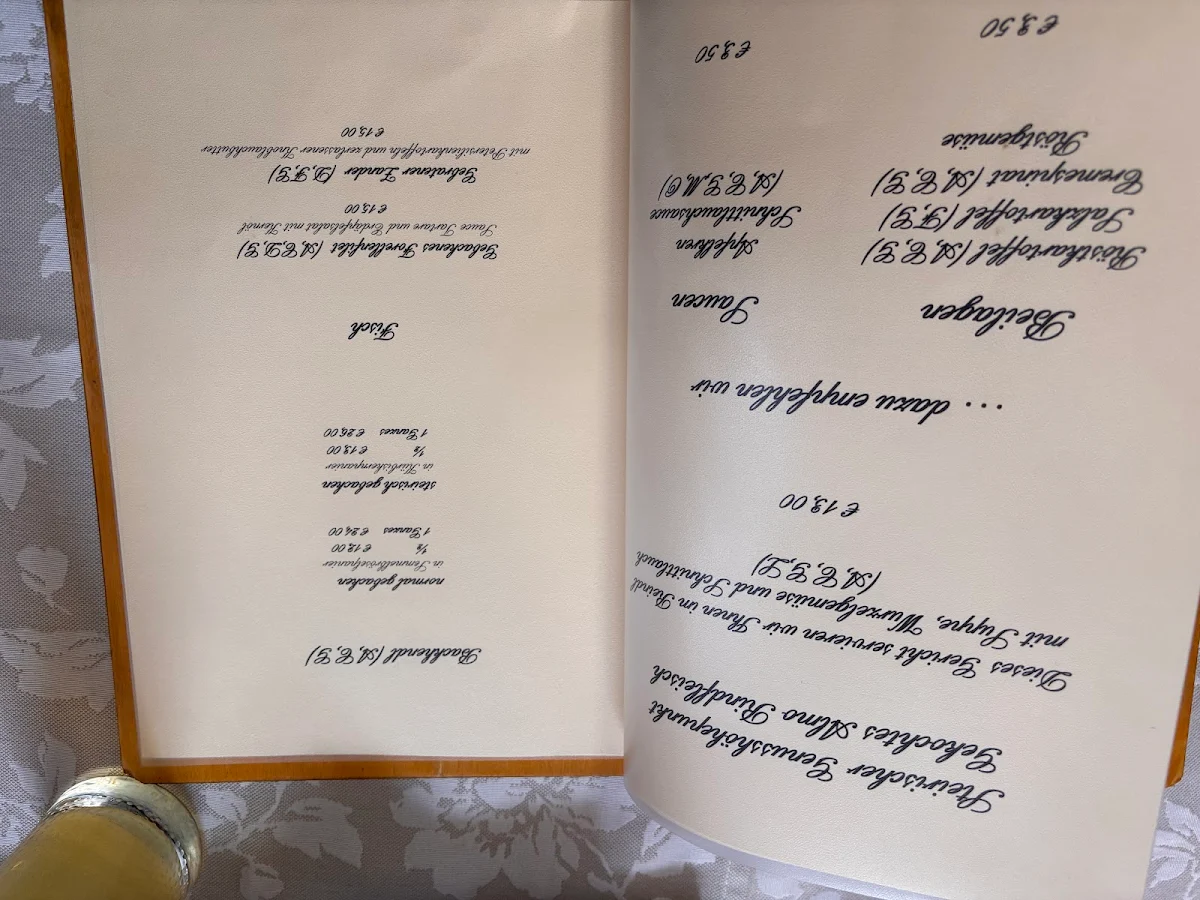 Steirischer Genusshöhepunkt
Gekochtes Almo Rindfleisch
Dieses Gericht servieren wir Ihnen im Reindl
mit Suppe, Wurzelgemüse und Schnittlauch
(A,C,G,L)
€ 13,00
... dazu empfehlen wir
Beilagen
Röstkartoffel (A,C,G)
Salzkartoffel (F,G)
Cremespinat (A,C,G)
Röstgemüse
€ 3,50
Saucen
Apfelkren
Schnittlauchsauce
(A,C,G,M,O)
€ 3,50
Backhendl (A,C,G)
normal gebacken
in Semmelbröselpanier
½ € 12,00
1 Ganzes € 24,00
steirisch gebacken
in Kürbiskernpanier
½ € 13,00
1 Ganzes € 26,00
Fisch
Gebackenes Forellenfilet (A,C,D,G)
Sauce Tartare und Erdäpfelsalat mit Kernöl
€ 15,00
Gebratener Zander (D,F,G)
mit Petersilienkartoffeln und zerlassener Knoblauchbutter
€ 15,00